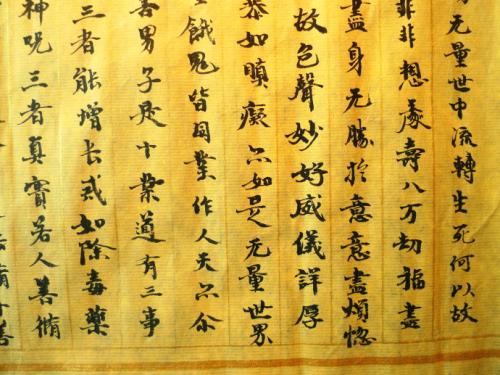 无量世中流轉生死何以故
非非想處壽八万劫福盡
盡身无勝於意意盡煩惱
故色聲妙好威儀詳厚
如瞋癡亦如是无量世界
餓鬼皆因業作人天亦尒
男子是十業道有三事
三者能增长或如除毒藥
神呪三者真實若人善脩